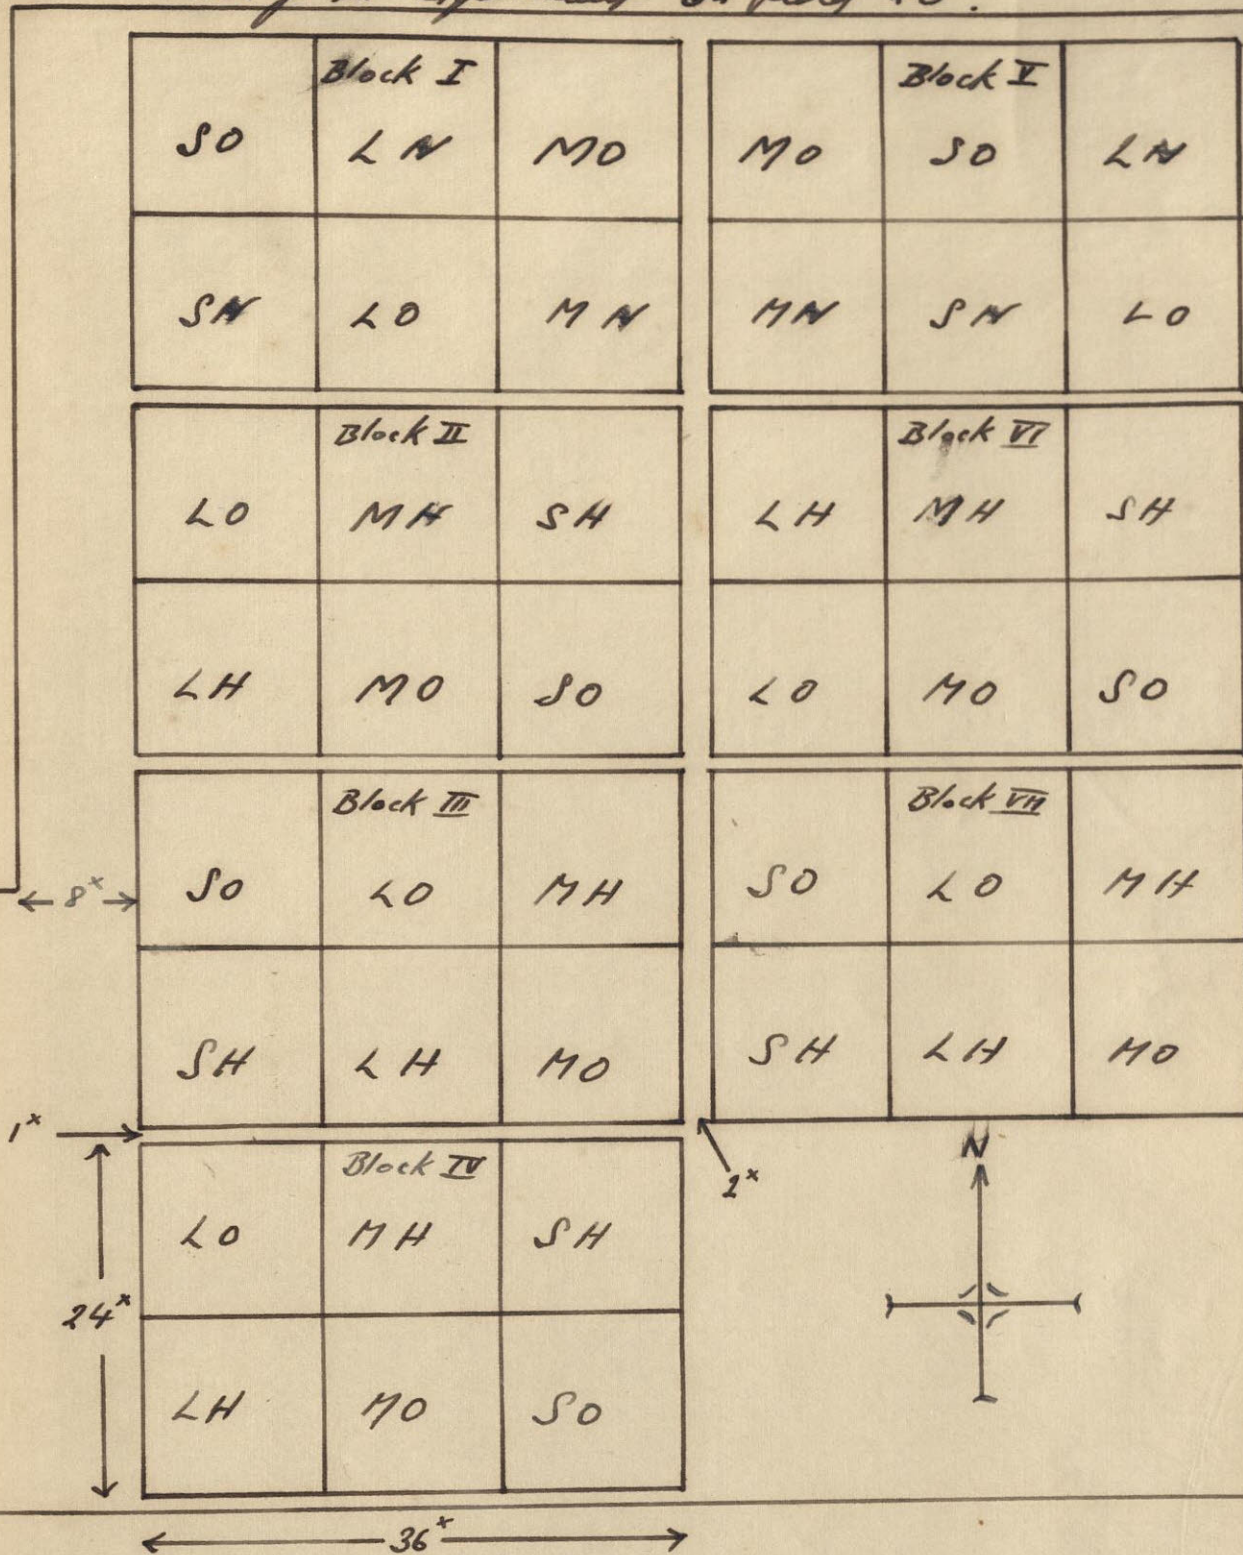 Block I
SO LN MO
SN LO MN
Block V
MO SO LN
MN SN LO
Block II
LO MH SH
LH MO SO
Block VI
LH MH SH
LO MO SO
Block III
SO LO MH
SH LH MO
Block VII
SO LO MH
SH LH MO
8ˣ
1ˣ
2ˣ
Block IV
LO MH SH
LH MO SO
24ˣ
36ˣ
N